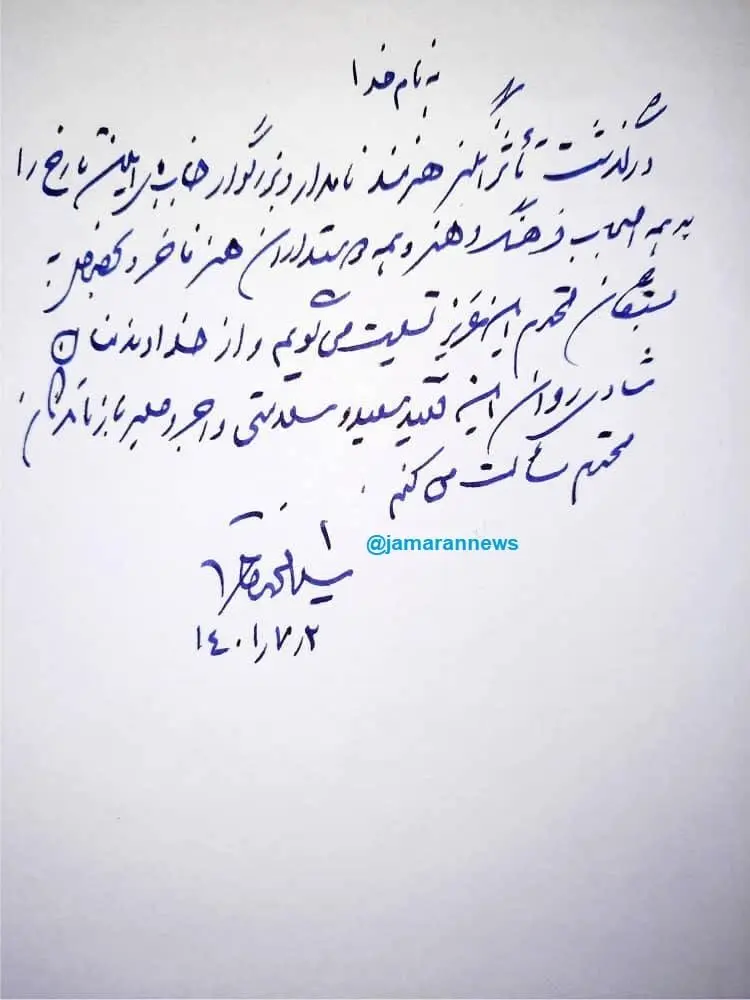 به نام خدا
درگذشت تأثرانگیز هنرمند نامدار و بزرگوار جناب امین تارخ را
به همه اصحاب فرهنگ و هنر و همه دوستداران هنر فاخر و بخصوص به
بستگان محترم این عزیز تسلیت می گویم و از خداوند منان
شادی روان این فقید سعید و سلامتی و اجر و صبر بازماندگان
محترم مسألت می کنم
سید محمد خاتمی
۱۴۰۱٫۷٫۲
@jamarannews